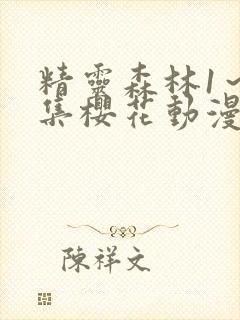 精靈森林1~
集櫻花動漫
陳祥文